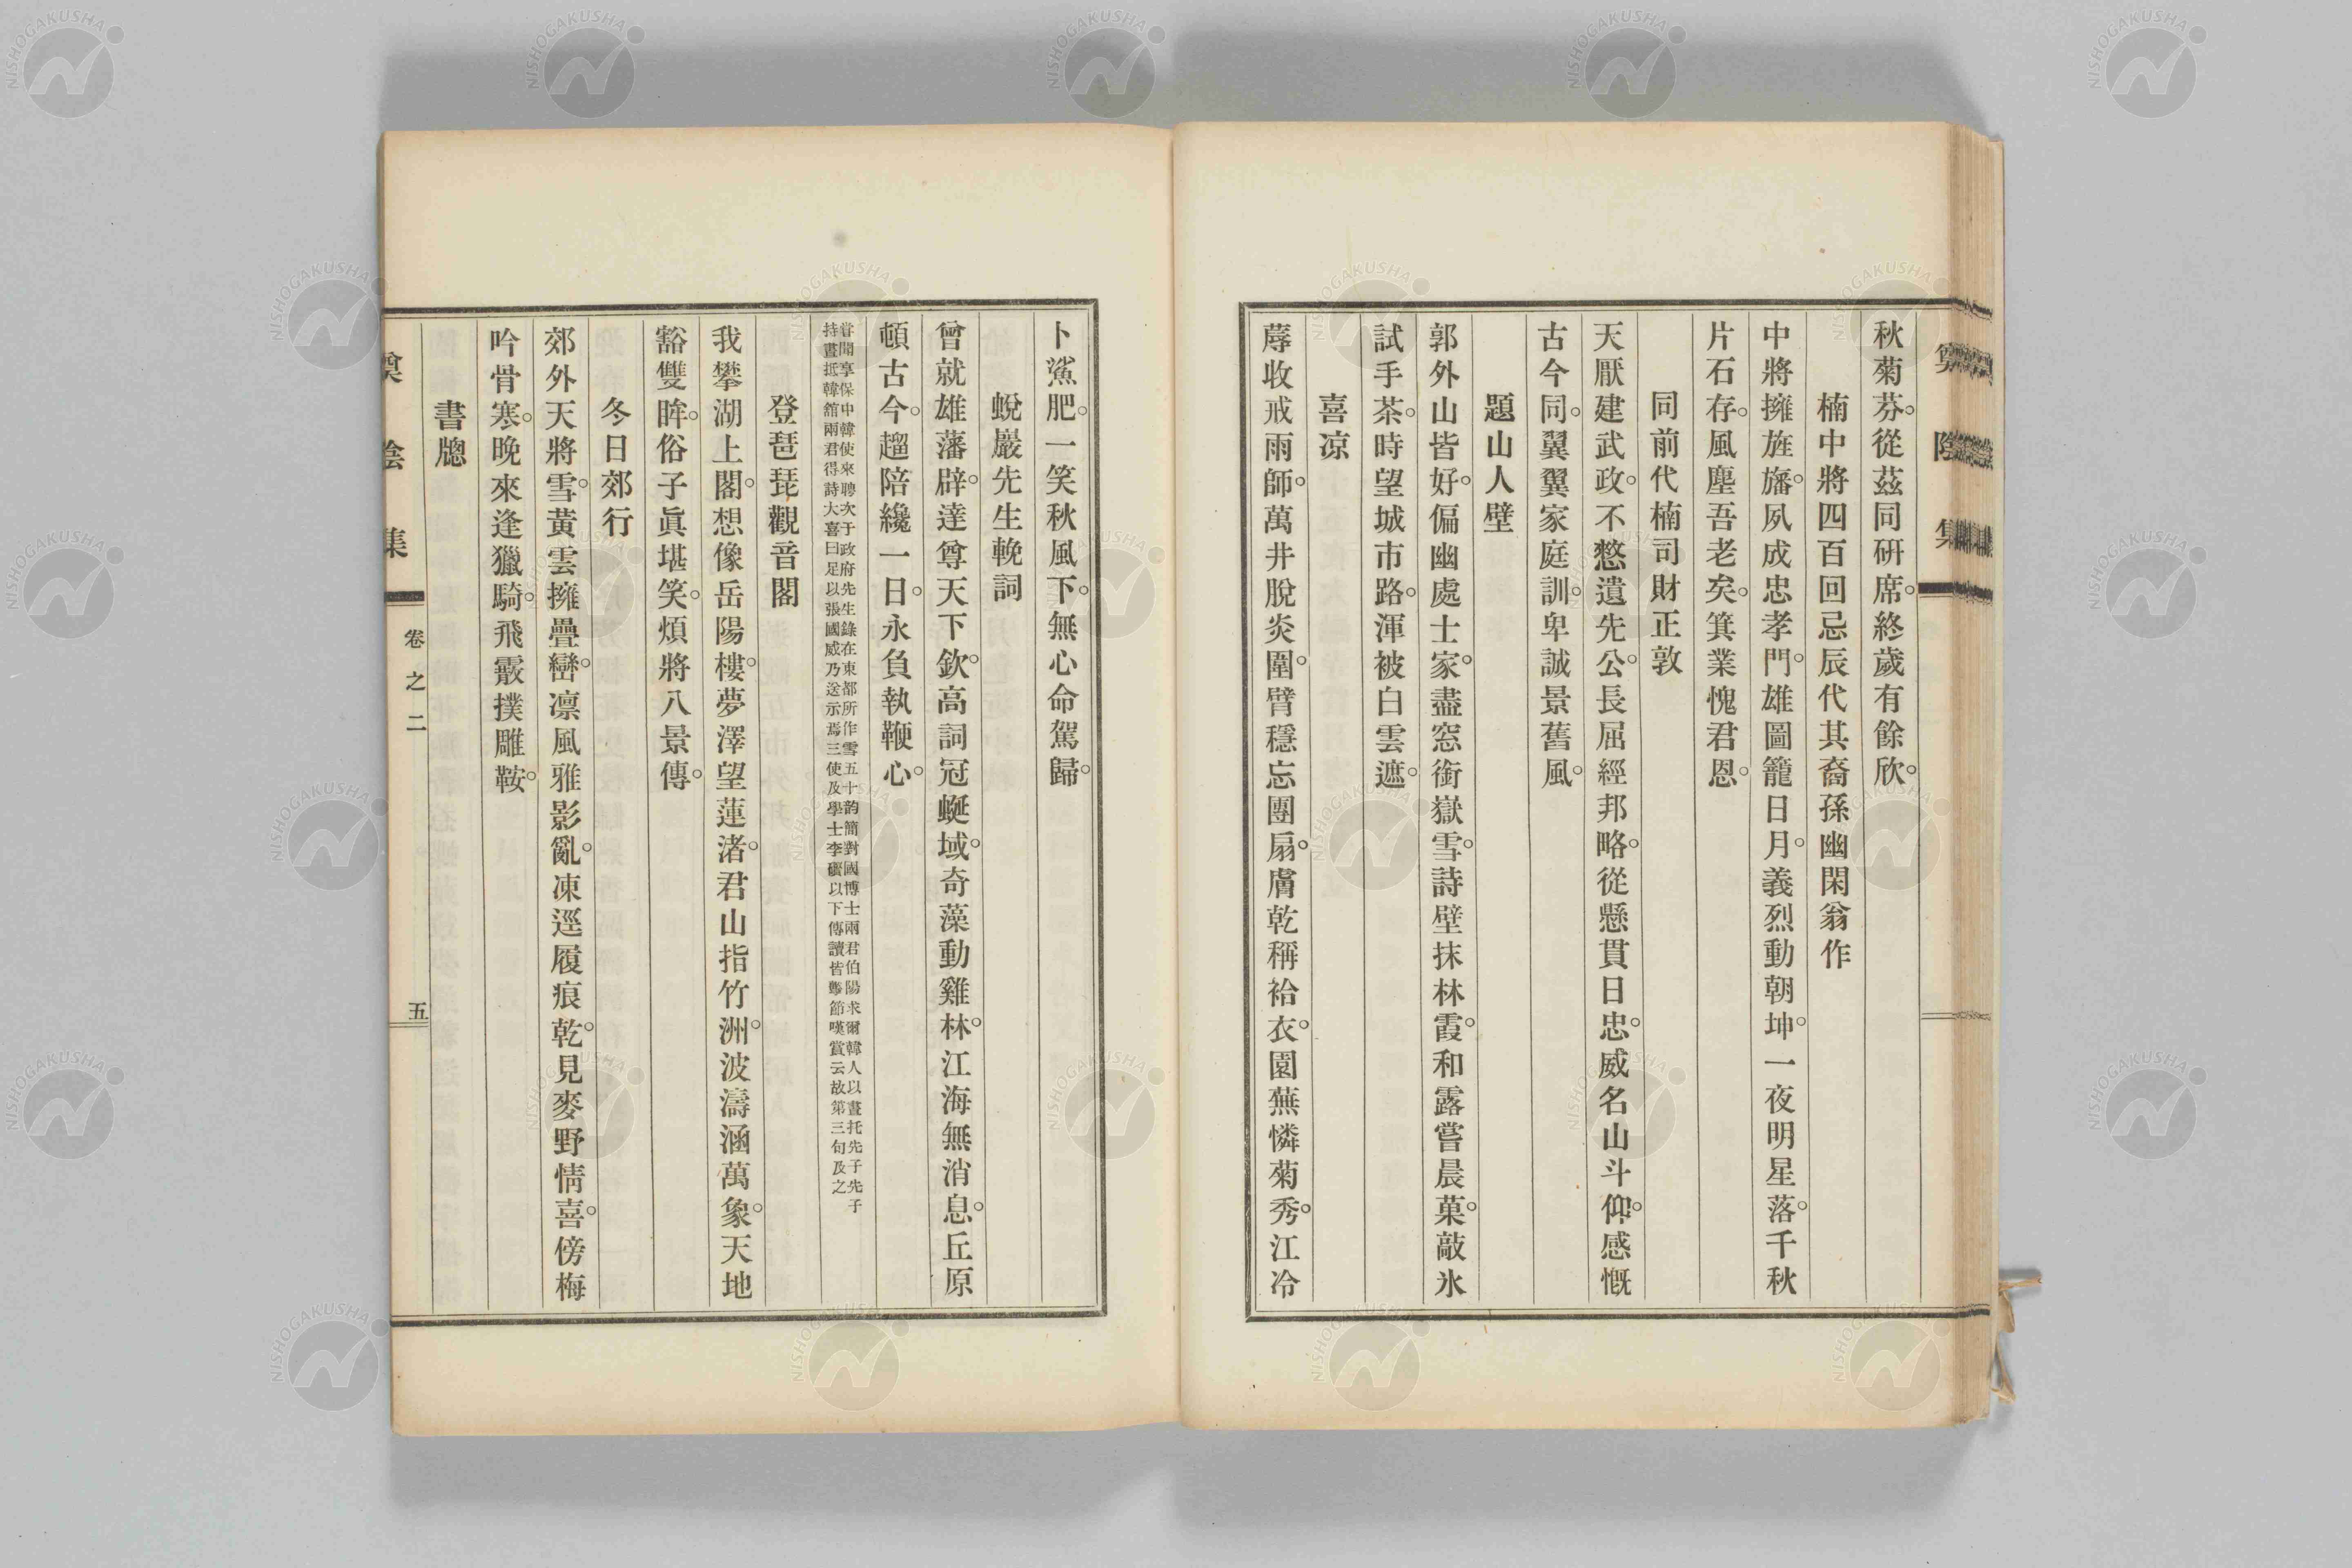 秋菊芬。從茲同研席。終歲有餘欣。
楠中將四百回忌辰代其裔孫幽閑翁作
中將擁旌旛。夙成忠孝門。雄圖籠日月。義烈動朝坤。一夜明星落。千秋
片石存。風塵吾老矣。箕業愧君恩。
同前代楠司財正敦
天厭建武政。不憖遺先公。長屈經邦略。從懸貫日忠。威名山斗仰。感慨
古今同。翼翼家庭訓。卑誠景舊風。
題山人壁
郭外山皆好。偏幽處士家。盡窓銜嶽雪。詩壁抹林霞。和露嘗晨菓。敲氷
試手茶。時望城市路。渾被白雲遮。
喜凉
蓐收戒雨師。萬井脫炎圍。臂穩忘團扇。膚乾稱袷衣。園蕪憐菊秀。江冷
卜鯊肥。一笑秋風下。無心命駕歸。
蛻巖先生輓詞
曾就雄藩辟。達尊天下欽。高詞冠蜒域。奇藻動雞林。江海無消息。丘原
頓古今。趨陪纔一日。永負執鞭心。
甞聞享保中韓使來聘次于政府先生錄在東都所作雪五十韵簡對國博士兩君伯陽求爾韓人以畫托先子先子
持畫抵韓舘兩君得詩大喜曰足以張國威乃送示焉三使及學士李礥以下傳讀皆擊節嘆賞云故第三句及之
登琶琵觀音閣
我攀湖上閣。想像岳陽樓。夢澤望蓮渚。君山指竹洲。波濤涵萬象。天地
豁雙眸。俗子眞堪笑。煩將八景傳。
冬日郊行
郊外天將雪。黃雲擁疊巒。凛風雅影亂。凍逕履痕乾。見麥野情喜。傍梅
吟骨寒。晚來逢獵騎。飛霰撲雕鞍。
書牎
卷之二
五